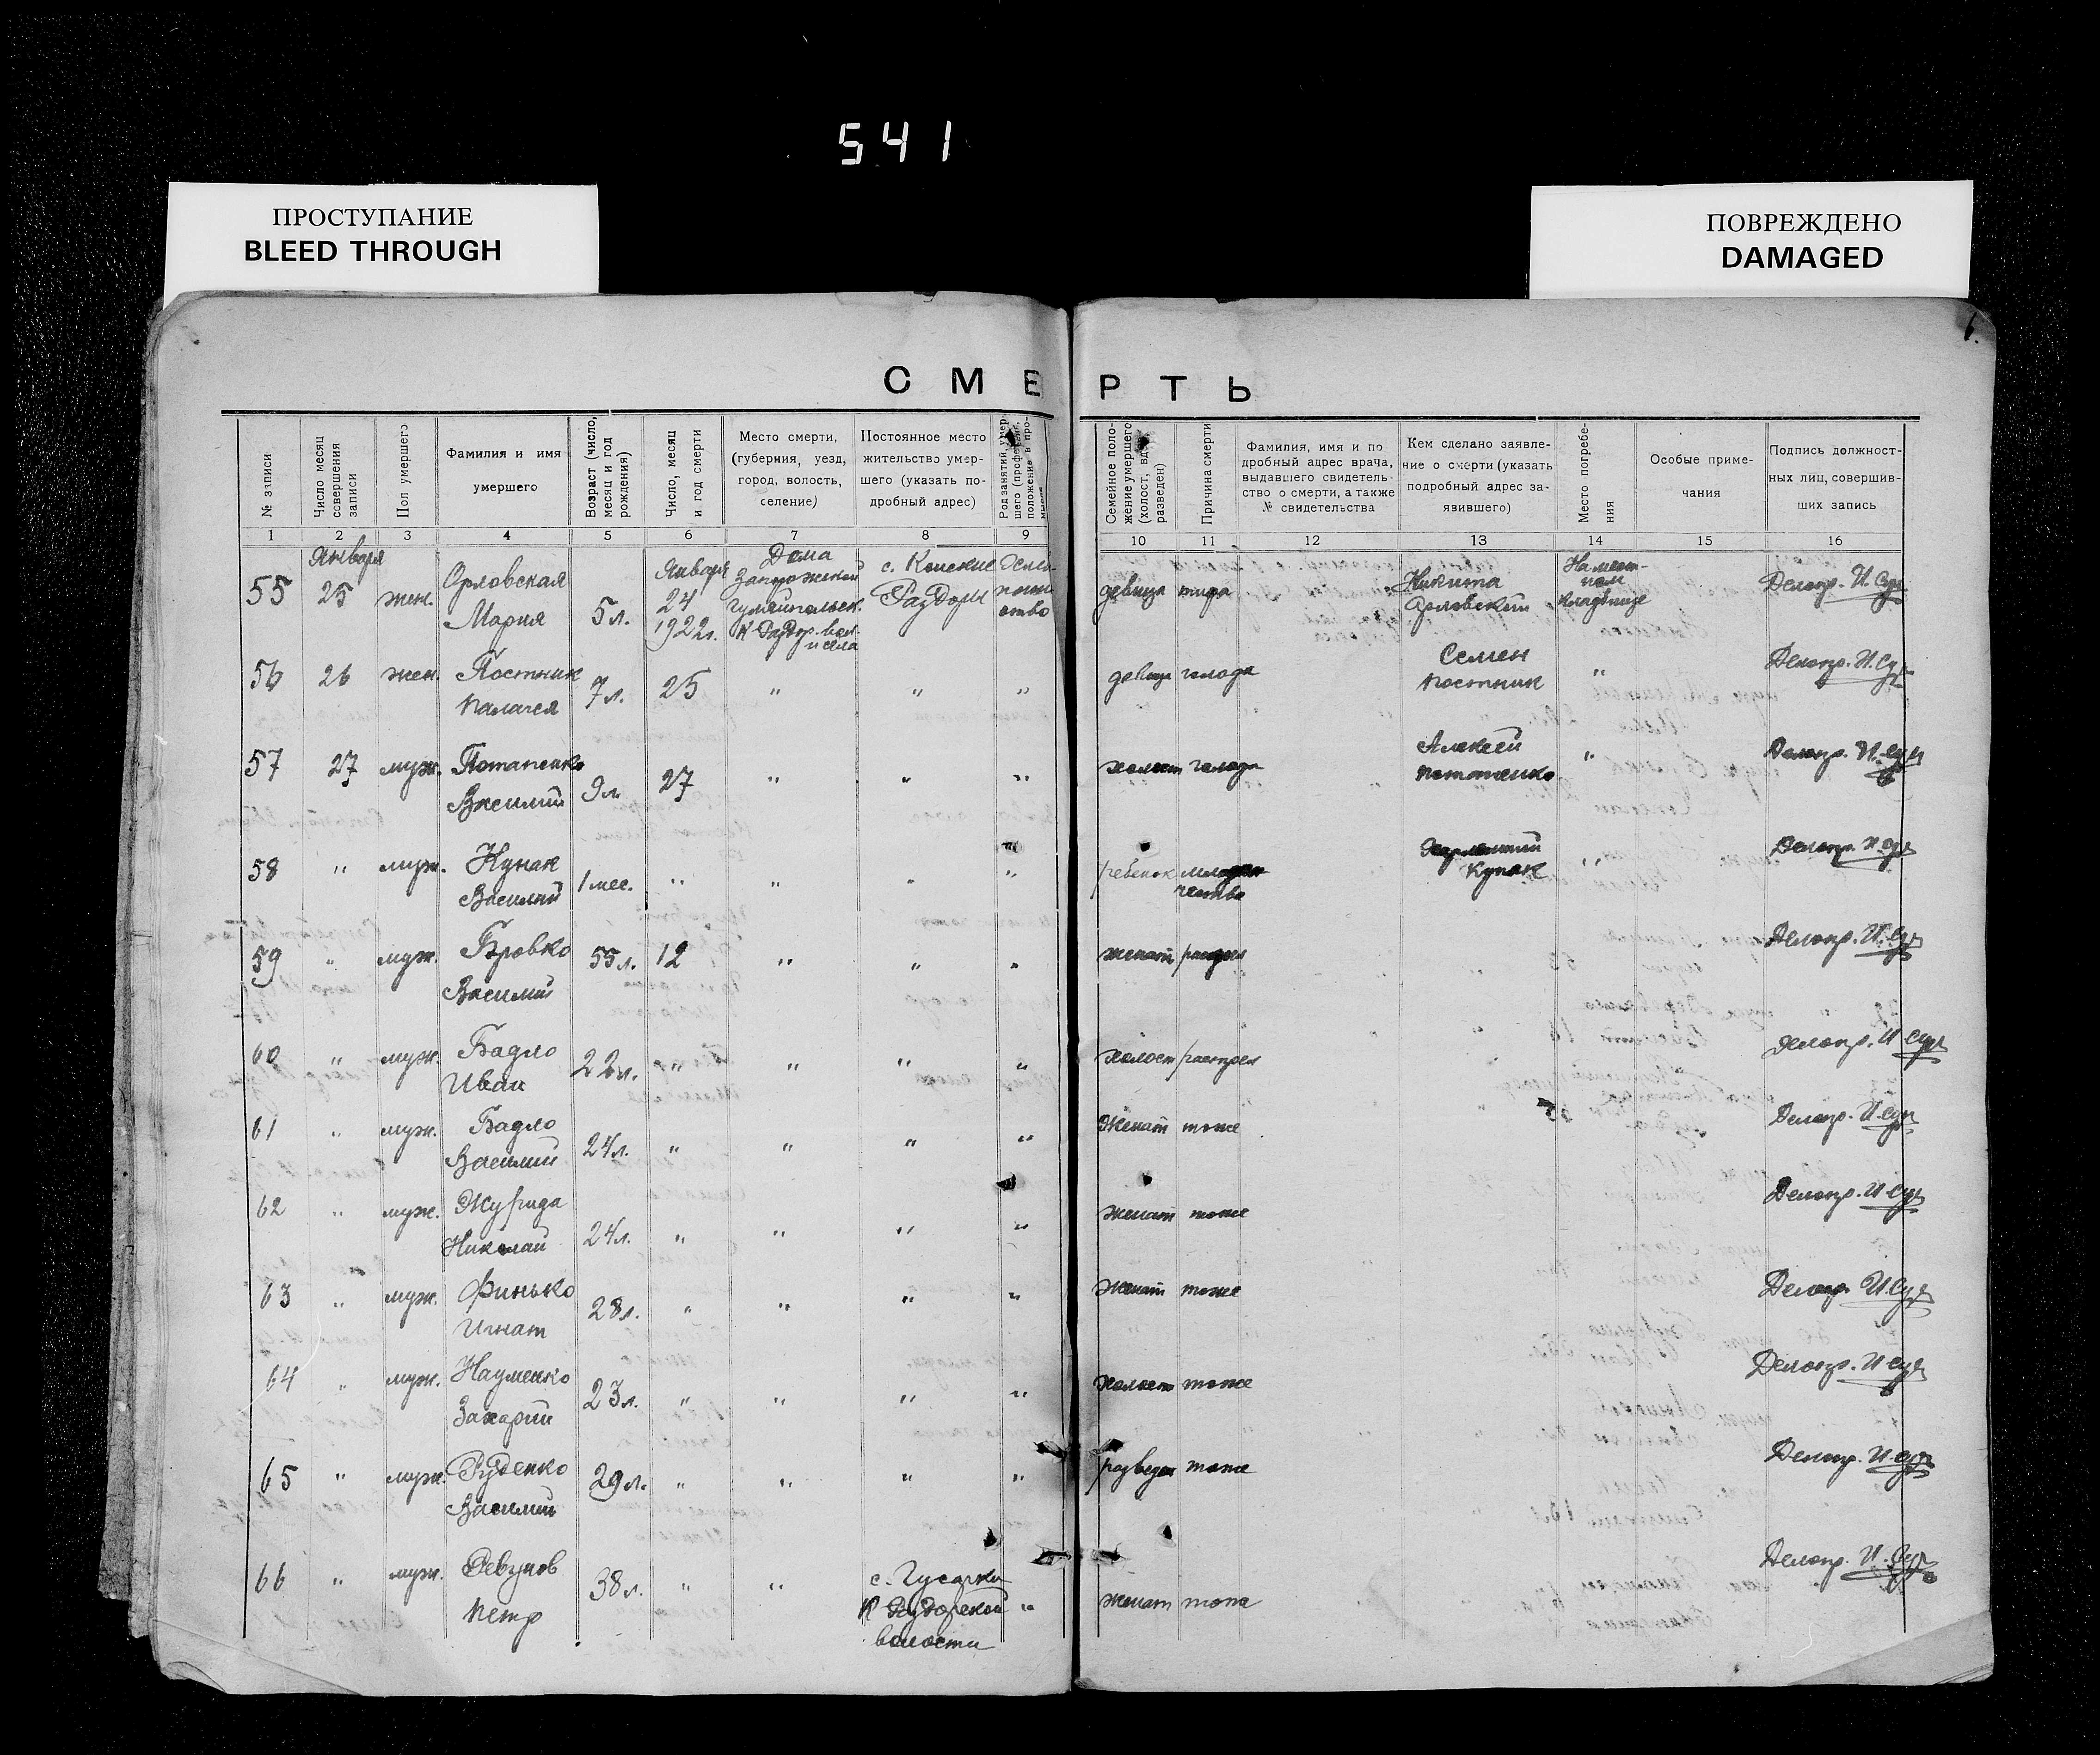 541
ПРОСТУПАНИЕ
BLEED THROUGH
ПОВРЕЖДЕНО
DAMAGED
6.
СМЕРТЬ
№ записи
Число месяц совершения записи
Пол умершего
Фамилия и имя умершего
Возраст (число, месяц и год рождения)
Число, месяц и год смерти
Место смерти, (губерния, уезд, город, волость, селение)
Постоянное место жительство умершего (указать подробный адрес)
Род занятий умершего (профессия, положение в про-
Семейное положение умершего (холост, вд разведен)
Причина смерти
Фамилия, имя и подробный адрес врача, выдавшего свидетельство о смерти, а также № свидетельства
Кем сделано заявление о смерти (указать подробный адрес заявившего)
Место погребения
Особые примечания
Подпись должностных лиц, совершивших запись
1 2 3 4 5 6 7 8 9 10 11 12 13 14 15 16
55 Января 25 жен. Орловская Мария 5 л. Января 24 1922 г. Дома Запорожской с. Конские Раздоры девица тифа Никита Орловский На местном кладбище Делопр. И.
56 26 жен. Постник Палагея 7 л. 25 " " " девица голода Семен Постник " Делопр. И.
57 27 муж. Потапенко Василий 9 л. 27 " " " холост голода Алексей Потапенко " Делопр. И.
58 " муж. Кунак Василий 1 мес. " " " " ребенок младенчества Кунак " Делопр. И.
59 " муж. Бровко Василий 55 л. 12 " " " женат Делопр. И.
60 " муж. Бадло Иван 22 л. " " " " холост расстрел Делопр. И.
61 " муж. Бадло Василий 24 л. " " " " Женат тоже Делопр. И.
62 " муж. Журида Николай 24 л. " " " " женат тоже Делопр. И.
63 " муж. Финько Игнат 28 л. " " " " Женат тоже Делопр. И.
64 " муж. Науменко Захарий 23 л. " " " " холост тоже Делопр. И.
65 " муж. Руденко Василий 29 л. " " " " разведен тоже Делопр. И.
66 " муж. Ревунов Петр 38 л. " " с. Гусарка К Раздорской волости " женат тоже Делопр. И.